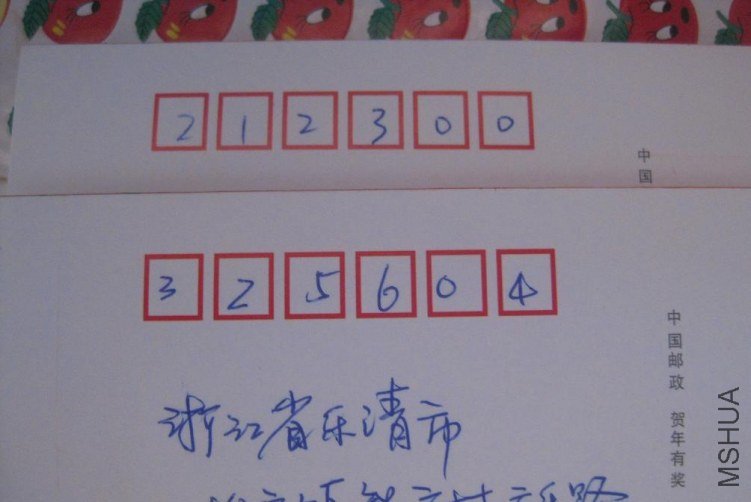 212300
中国
325604
浙江省乐清市
中国邮政 贺年有奖
MSHUA